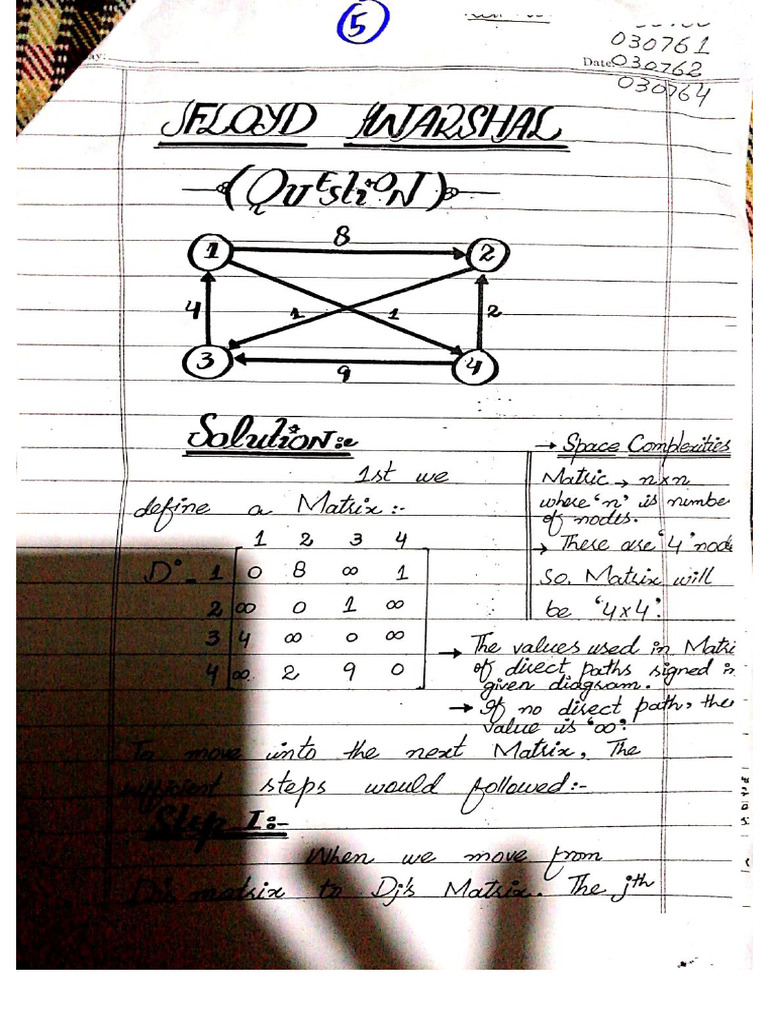 5
030761
Date 030762
030764
FLOYD WARSHAL
(QuEstiON)
1 8 2
4 1 1 2
3 9 4
Solution:-
→ Space Complexities
1st we
define a Matrix:-
Matric → n×n
where 'n' is numbe
of nodes.
→ There are '4' node
so, Matrix will
be '4×4'.
1 2 3 4
D° = 1 0 8 ∞ 1
2 ∞ 0 1 ∞
3 4 ∞ 0 ∞
4 ∞ 2 9 0
→ The values used in Matri
of direct paths signed in
given diagram.
→ If no direct path, the
value is '∞'.
To move into the next Matrix, The
sufficient steps would followed:-
Step I:-
When we move from
Di's matrix to Dj's Matrix. The jth